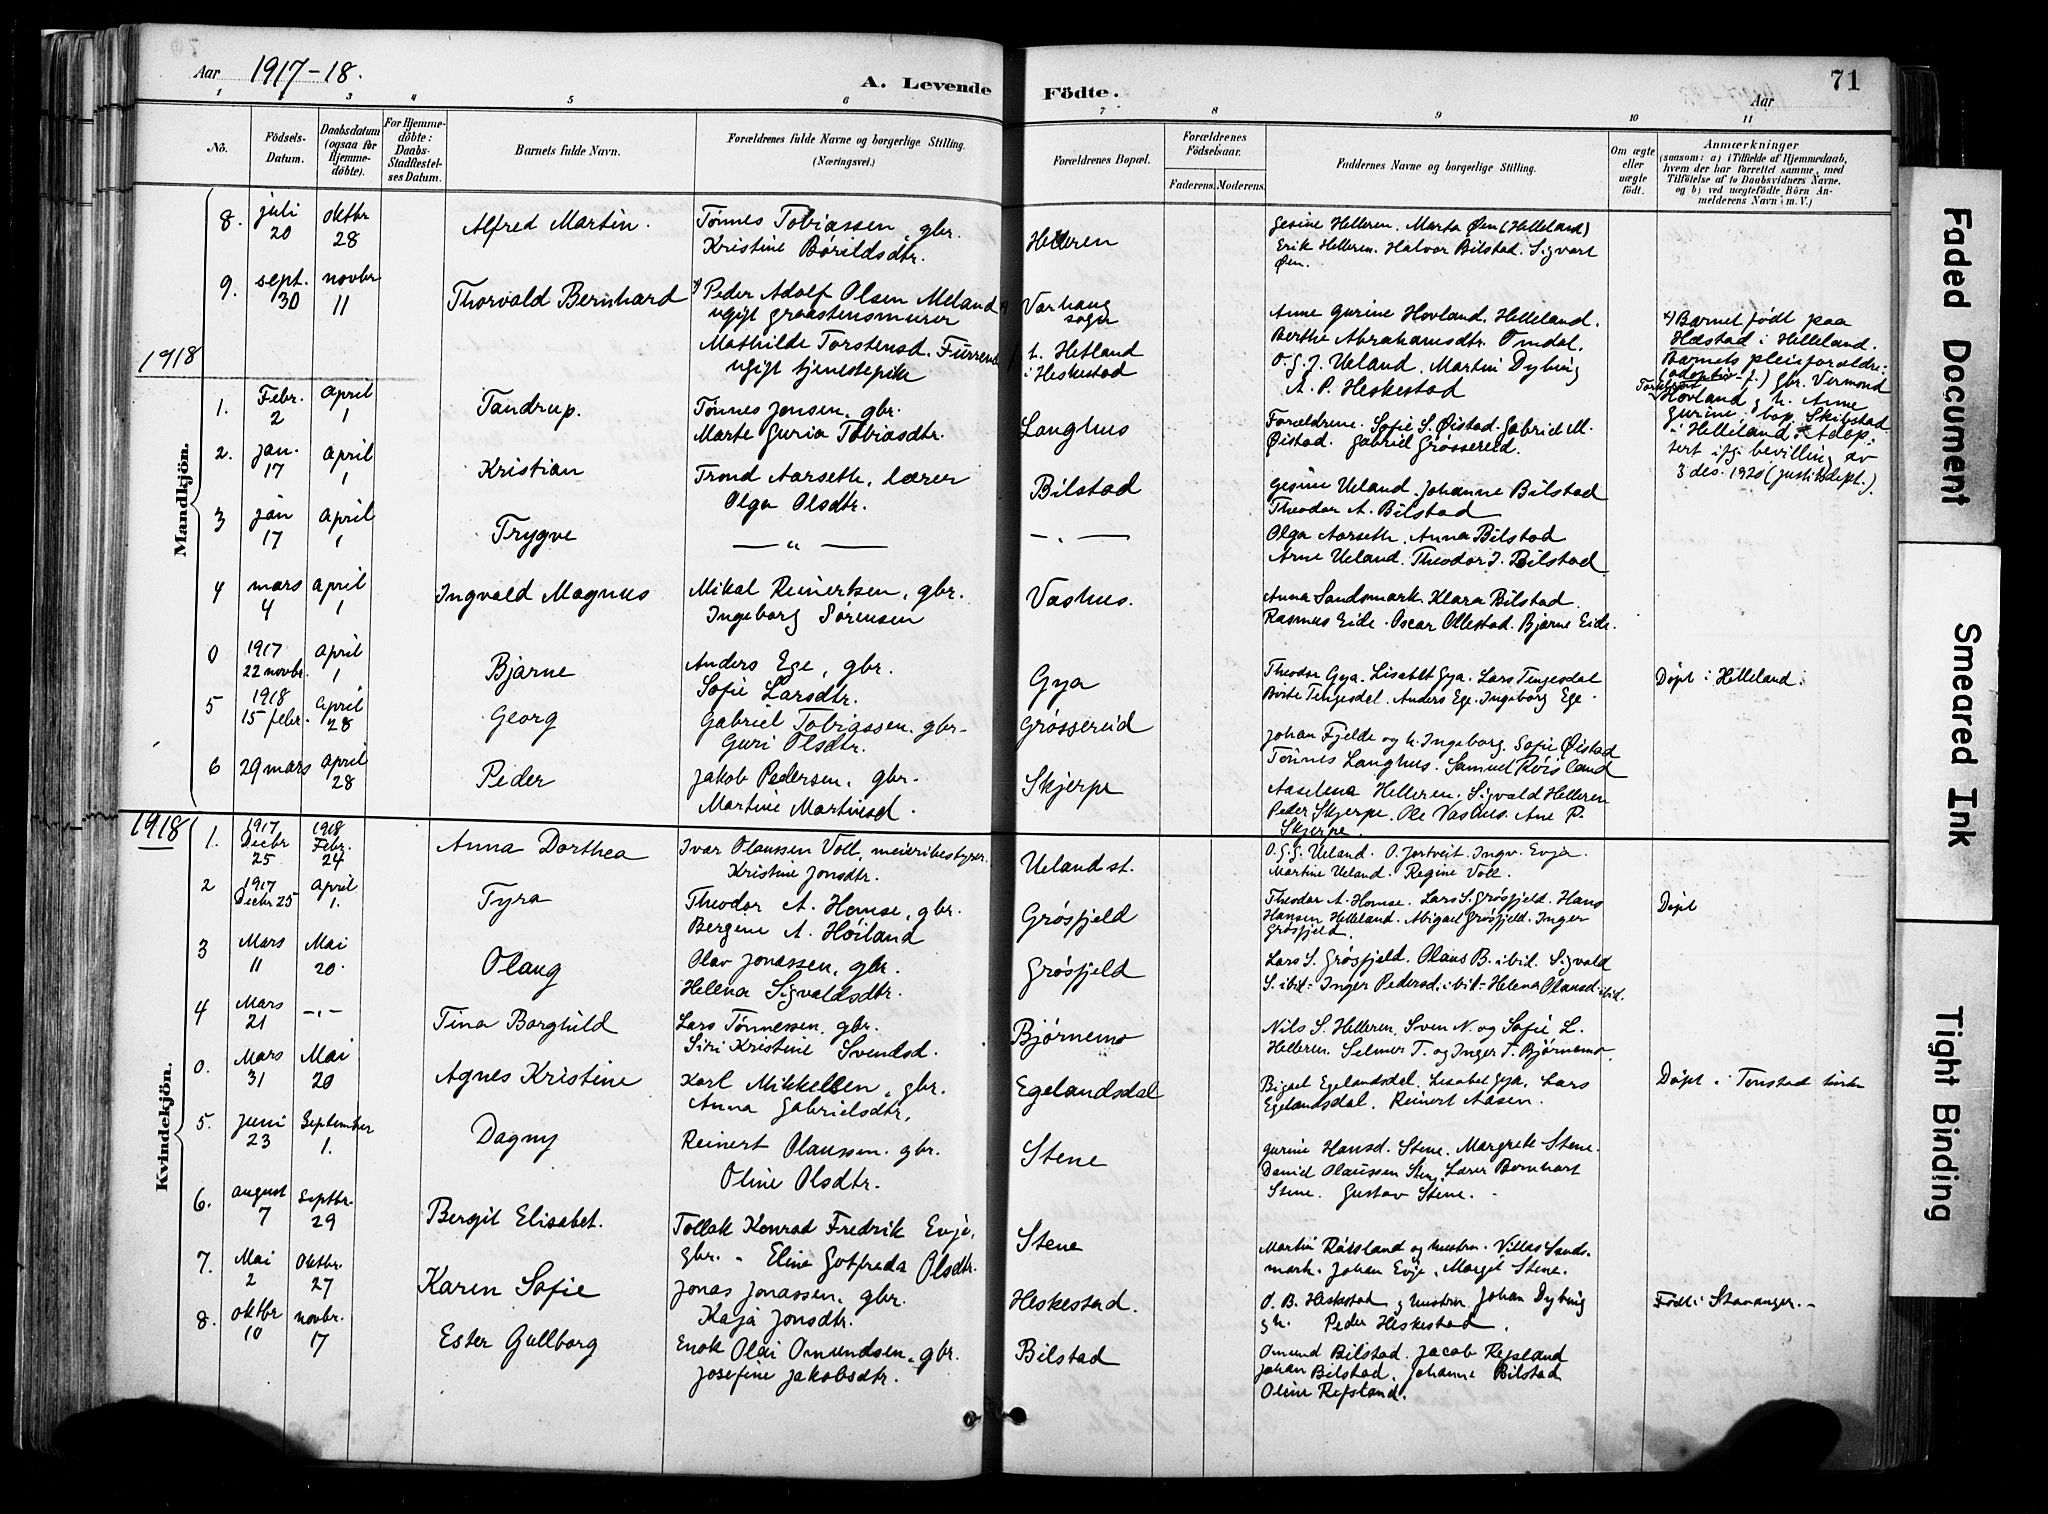 Aar 1917-18.
A. Levende Födte.
Aar
71
1 2 3 4 5 6 7 8 9 10 11
No. Födsels-Datum. Daabsdatum (ogsaa før Hjemme-døbte). For Hjemme-döbte: Daabs-Stadfæstel-ses Datum. Barnets fulde Navn. Forældrenes fulde Navne og borgerlige Stilling. (Næringsvei.)
Forældrenes Bopæl. Forældrenes Födselsaar. Faderens. Moderens. Faddernes Navne og borgerlige Stilling. Om ægte eller uægte födt. Anmærkninger
(saasom: a) i Tilfælde af Hjemmedaab, hvem der har forrettet samme, med Tilföielse af to Daabsvidners Navne, og b) ved uægtefödte Börn An-melderens Navn i m. V.)
8. juli 20 oktbr 28 Alfred Martin. Tönnes Tobiassen, gbr. Helleren Gesine Helleren. Marta Øen (Helleland)
Kristine Bårildsdtr. Erik Helleren. Halvor Bilstad. Sigvart
Øen.
9. sept. 30 novbr 11 Thorvald Bernhard Peder Adolf Olsen Meland Varhaug Anne Gurine Hovland, Helleland. x) Barnet født paa
ugift graastensmurer sogn Berthe Abrahamsdtr. Omdal. Hæstad i Helleland.
1918 Mathilde Torstensd. Furrend t. Hetland O. G. J. Ueland. Martin Dybing Barnets pleieforældre:
ugift tjenestepike i Heskestad A. P. Heskestad (adoptiv-f.) gbr. Vermond
Hovland g h. Anne
Gurine, bop. Skibstad
i Helleland. Adop-
tert ifg. bevilling av
3 des. 1920 (justitsdept.).
Mandkjön.
1. Febr. 2 April 1 Tandrup. Tønnes Jonsen, gbr. Langhus Forældrene. Sofie S. Øistad. Gabriel M.
Marte Guria Tobiasdtr. Øistad. Gabriel Grøssereid.
2. jan. 17 April 1 Kristian Trond Aarseth, lærer Bilstad Gesine Ueland. Johanne Bilstad
Olga Olsdtr. Theodor A. Bilstad
3 jan 17 April 1 Trygve — " — — " — Olga Aarseth. Anna Bilstad
Arne Ueland. Theodor J. Bilstad
4 mars 4 April 1 Ingvald Magnus Mikal Reinertsen, gbr. Vashus. Anna Sandsmark. Klara Bilstad.
Ingeborg Sørensen Rasmus Eide. Oscar Ollestad. Bjarne Eide.
0 1917 22 novbr. April 1 Bjarne Anders Ege, gbr. Gya Theodor Gya. Lisabet Gya. Lars Tengesdal Døpt i Helleland.
Sofie Larsdtr. Birte Tengesdal. Anders Ege. Ingeborg Ege.
5 1918 15 febr. April 28 Georg Gabriel Tobiassen, gbr. Grøssereid Johan Fjelde og h. Ingeborg. Sofie Øistad
Guri Olsdtr. Tönnes Langhus. Samuel Røisland
6 29 mars April 28 Peder Jakob Pedersen, gbr. Skjerpe Aaselena Helleren. Sigvald Helleren
Martine Martinsd. Peder Skjerpe. Ole Vashus. Ane P.
Skjerpe.
1918
Kvindekjön.
1. 1917 Decbr 25 1918 Febr. 24 Anna Dorthea Ivar Olaussen Voll, meieribestyrer. Ueland st. O. G. J. Ueland. O. Jortveit. Ingv. Evja.
Kristine Jonsdtr. Martine Ueland. Regine Voll.
2 1917 Decbr 25 April 1. Tyra Theodor A. Homse, gbr. Grösfjeld Theodor A. Homse. Lars S. Grösfjeld. Hans Døpt
Bergine A. Höiland Hansen Helleland. Abigael Grösfjeld. Inger
Grösfjeld.
3 Mars 11 Mai 20. Olaug Olav Jonassen, gbr. Grösfjeld Lars S. Grösfjeld. Olaus B. ibid. Sigvald
Helena Sigvaldsdtr. S. ibid- Inger Pedersd. ibid- Helena Olausd. ibid.
4 Mars 21 -"- Tina Borghild Lars Tönnessen, gbr. Bjørnemo Nils S. Helleren. Sven N. og Sofie L.
Siri Kristine Svendsd. Helleren. Selmer T. og Inger T. Bjørnemo.
0. Mars 31 Mai 20 Agnes Kristine Karl Mikkelsen, gbr. Egelandsdal Bigael Egelandsdal. Lisabet Gya. Lars Døpt i Tonstad kirke
Anna Gabrielsdtr. Egelandsdal. Reinert Aasen.
5. Juni 23 September 1. Dagny Reinert Olaussen. gbr. Stene Gurine Hansd. Stene. Margrete Stene.
Oline Olsdtr. Daniel Olaussen Stene. Lærer Bernhart
Stene. Gustav Stene.
6. August 7 Septbr. 29 Bergit Elisabet. Tollak Konrad Fredrik Evje, Stene Martin Røisland og hustru. Villas Sands-
gbr. - Eline Gotfreda Olsdtr. mark. Johan Evje. Margit Stene.
7. Mai 2 Oktbr. 27 Karen Sofie Jonas Jonassen, gbr. Heskestad. O. B. Heskestad g hustru. Johan Dybing Født i Stavanger.-
Kaja Jonsdtr. g h. Peder Heskestad.
8. oktbr 10 novbr. 17 Ester Gullborg Enok Olai Omundsen. gbr. Bilstad Omund Bilstad. Jacob Refsland
Josefine Jakobsdtr. Johan Bilstad. Johanne Bilstad
Oline Refsland.
Faded Document
Smeared Ink
Tight Binding